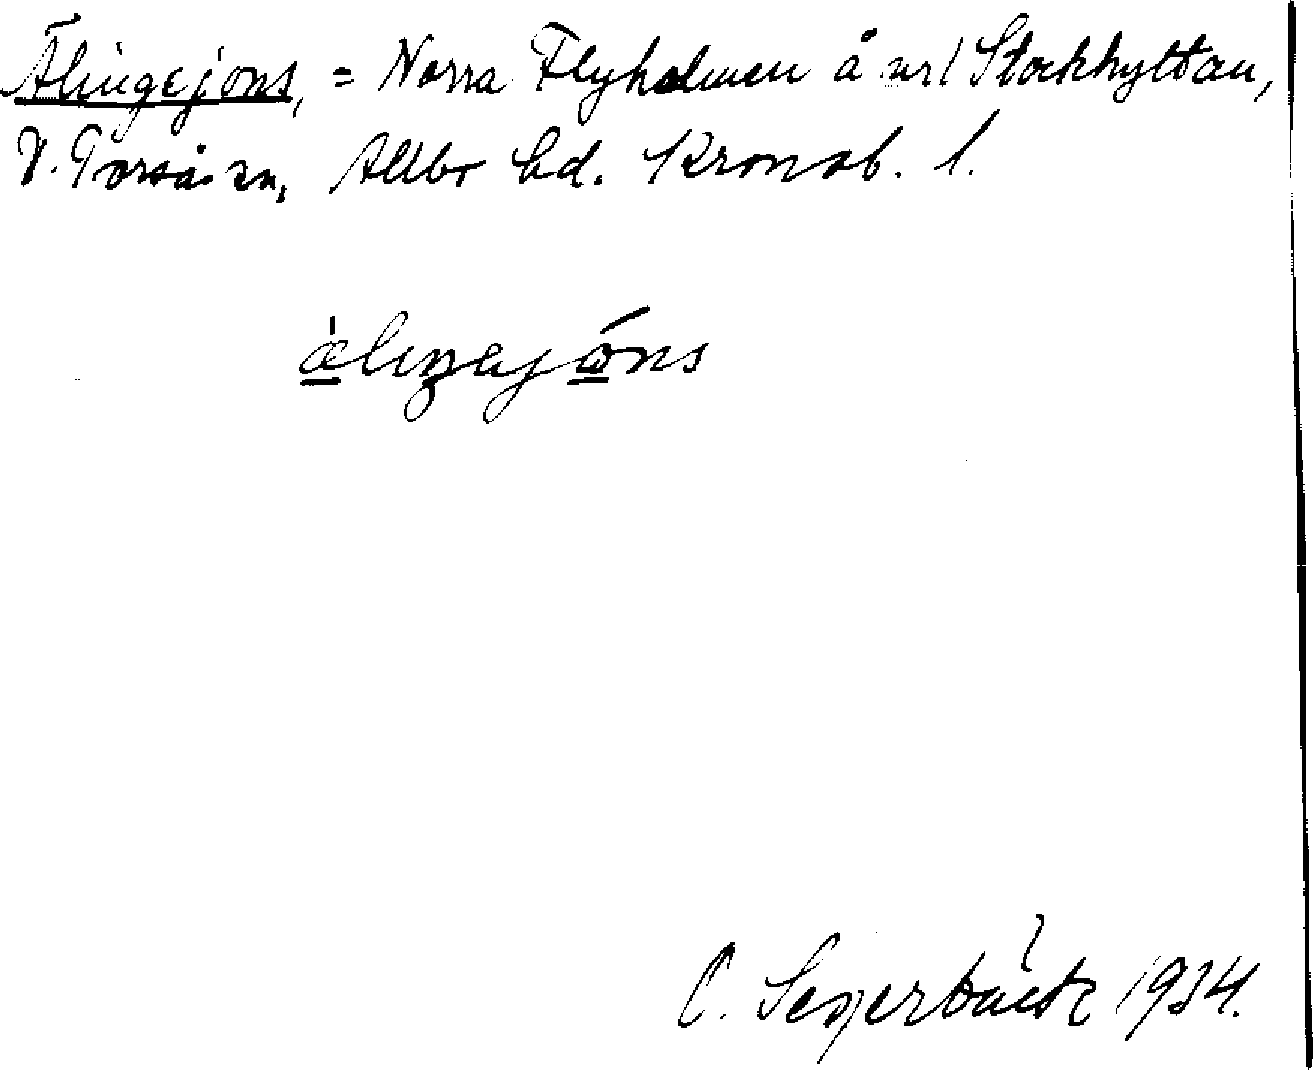 Älingejons, = Norra Flyholmen å nr 1 Stockhyltan,
V. Torsås sn, Allbo hd. Kronob. l.
ä̀liŋejóns
C. Segerbäck 1934.